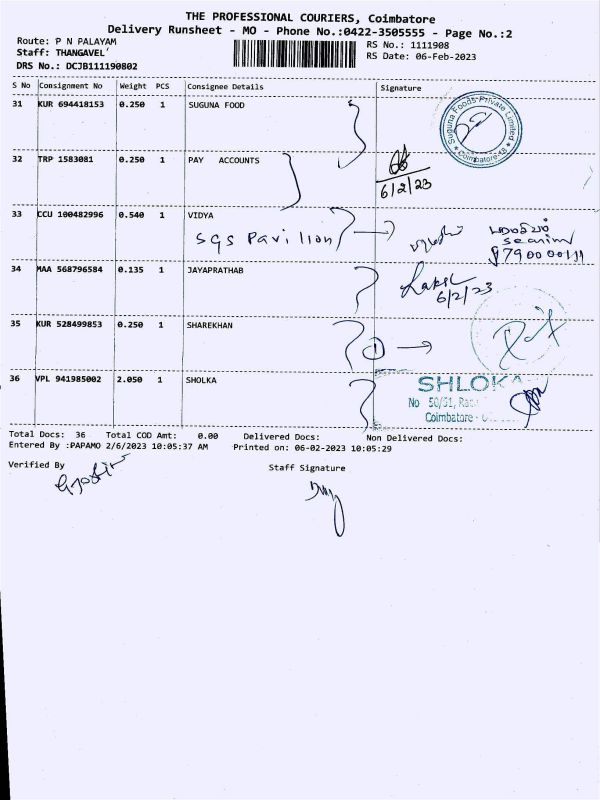 THE PROFESSIONAL COURIERS, Coimbatore
Delivery Runsheet - MO - Phone No.:0422-3505555 - Page No.:2
Route: P N PALAYAM
Staff: THANGAVEL
DRS No.: DCJB111190802
RS No.: 1111908
RS Date: 06-Feb-2023
S No Consignment No Weight PCS Consignee Details Signature
31 KUR 694418153 0.250 1 SUGUNA FOOD
Suguna Foods Private Limited
Coimbatore-18
32 TRP 1583081 0.250 1 PAY ACCOUNTS
6/2/23
33 CCU 100482996 0.540 1 VIDYA
SGS Pavilion
34 MAA 568796584 0.135 1 JAYAPRATHAB
6/2/23
35 KUR 528499853 0.250 1 SHAREKHAN
1
36 VPL 941985002 2.050 1 SHOLKA
SHLOKA
No 50/51,
Coimbatore -
Total Docs: 36 Total COD Amt: 0.00 Delivered Docs: Non Delivered Docs:
Entered By :PAPAMO 2/6/2023 10:05:37 AM Printed on: 06-02-2023 10:05:29
Verified By
Staff Signature